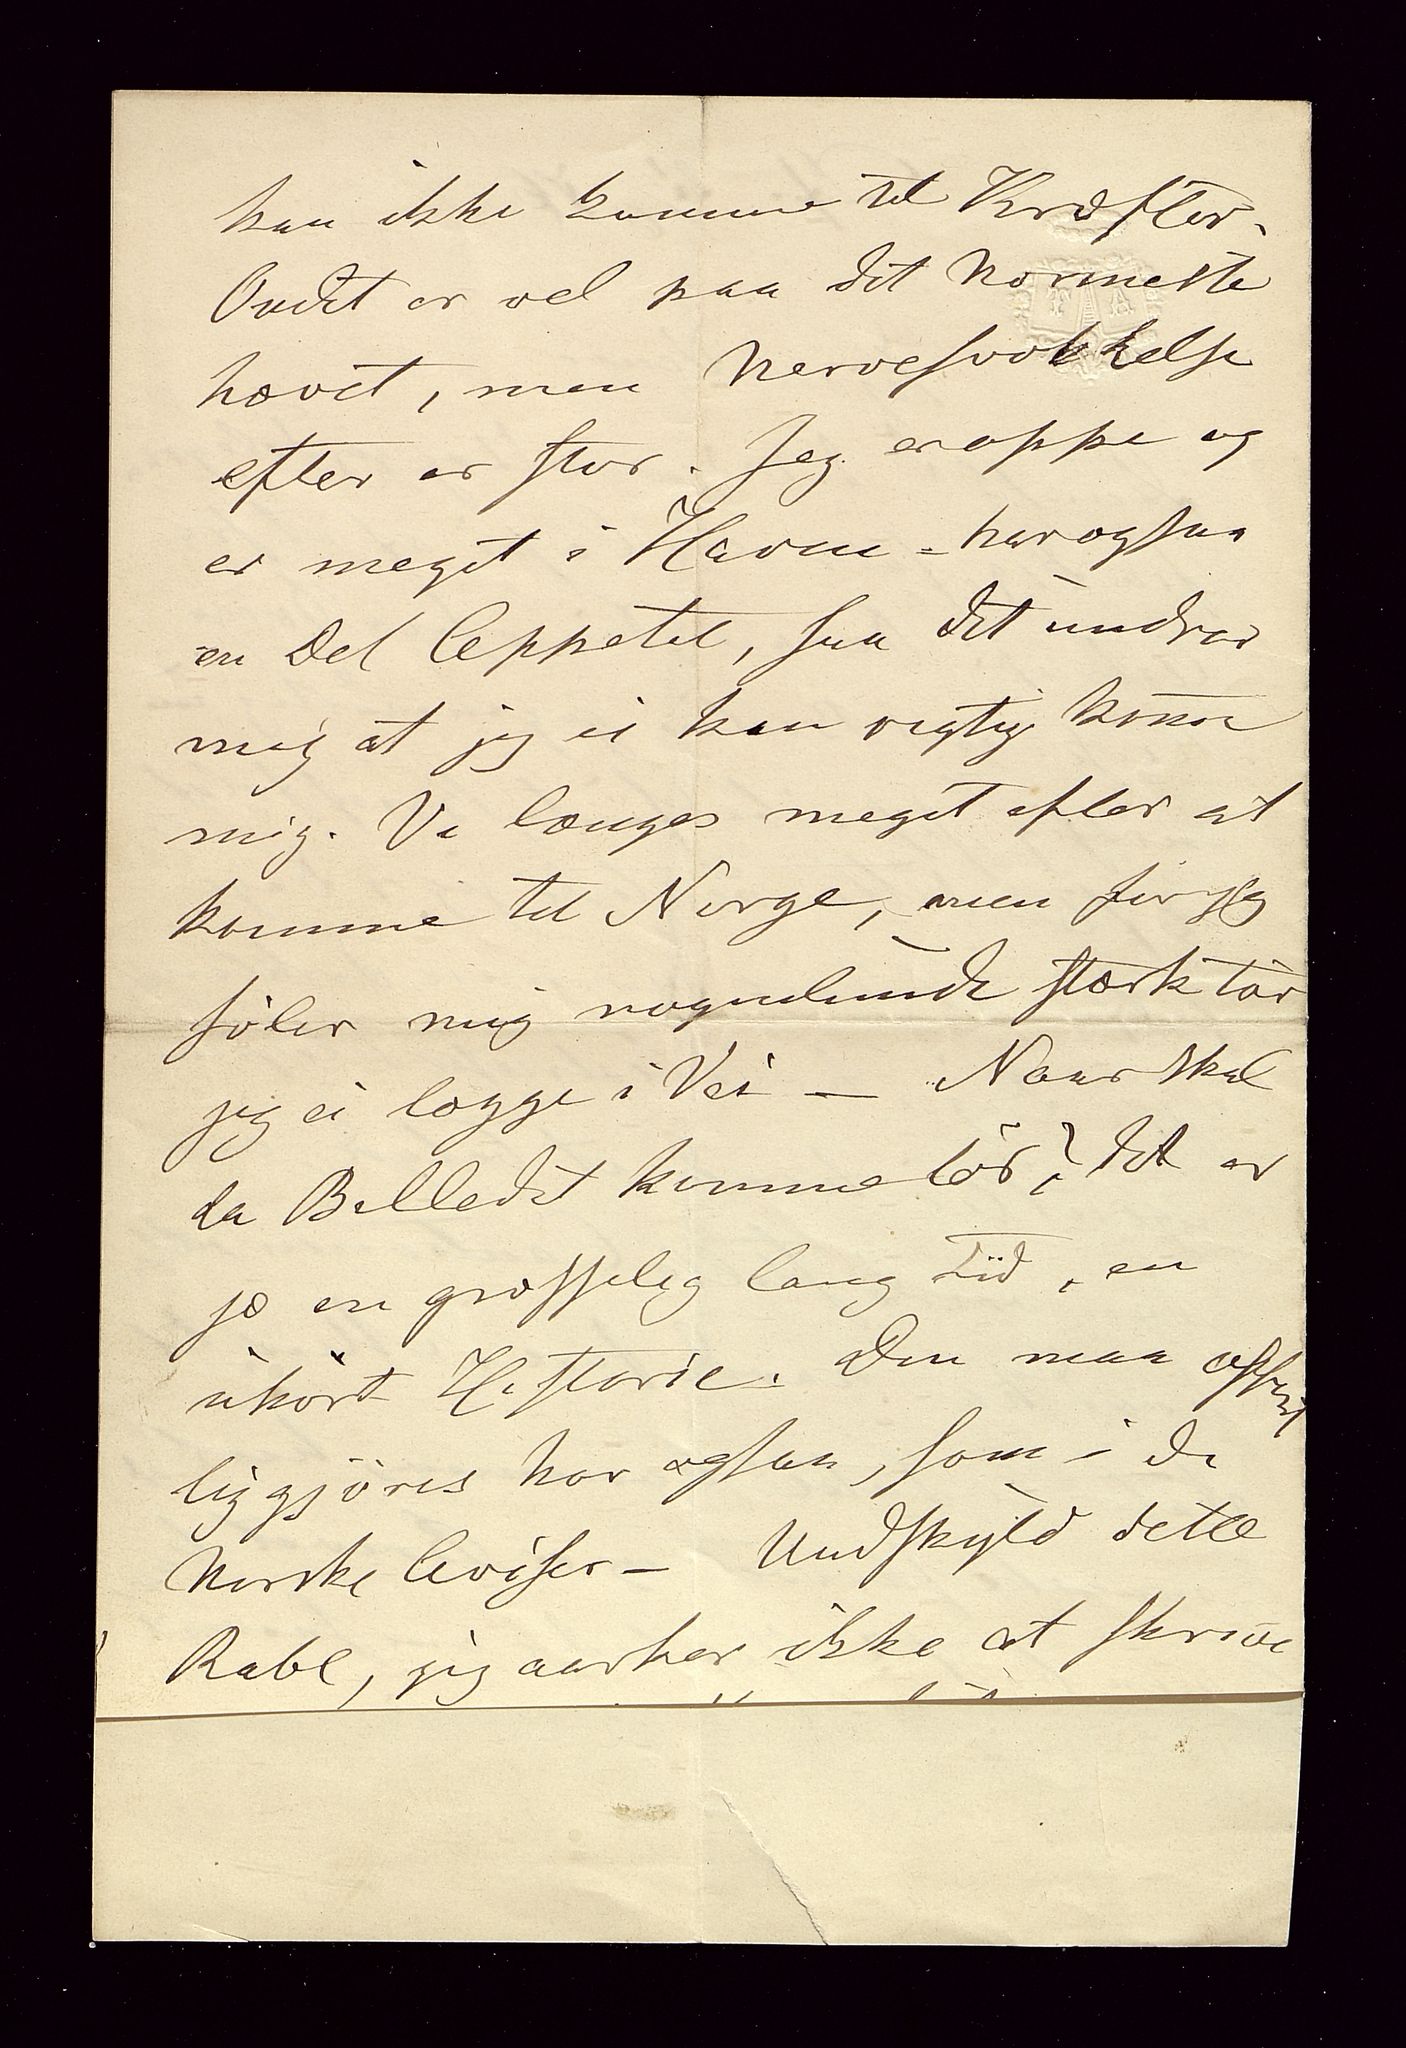 kan ikke komme til Kræfter.
Ondet er vel paa det nærmeste
hævet, men Nervesvækkelse
efter er stor. Jeg er oppe og
er meget i Haven – har ogsaa
en Del Appetit, saa det undrer
mig at jeg ei kan rigtig komme
mig. Vi længes meget efter at
komme til Norge, men før jeg
føler mig nogenlunde stærk tør
jeg ei lægge i Vei — Naar skal
da Billedet komme tør? det er
jo en græsselig lang Tid, en
uhørt Historie. Den maa offent
liggjøres her ogsaa, som i de
Norske Aviser — Undskyld dette
Rabl, jeg orker ikke at skrive